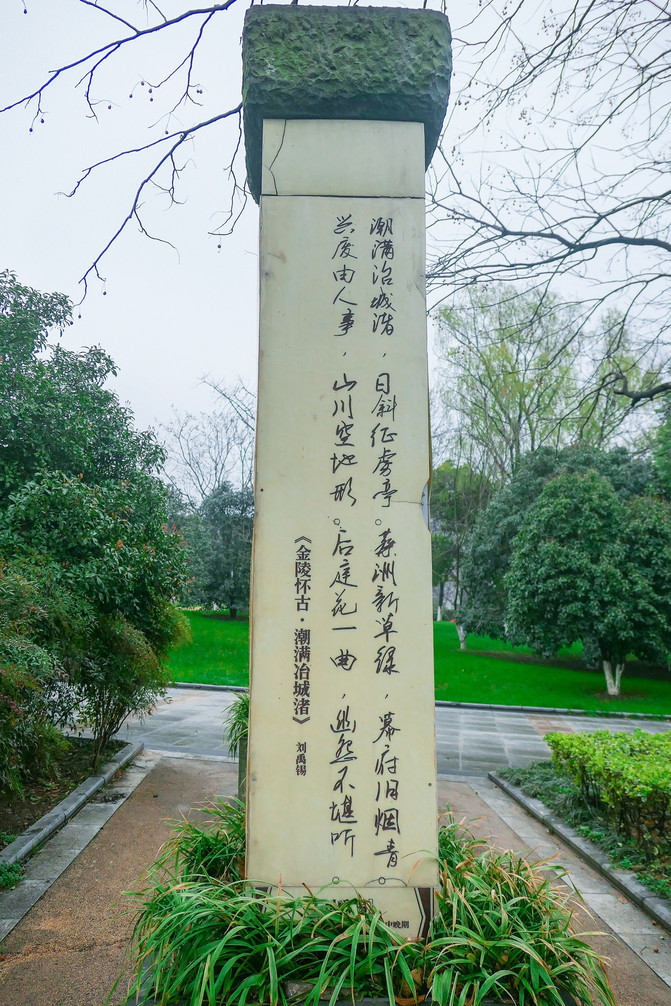 潮满冶城渚，日斜征虏亭。蔡洲新草绿，幕府旧烟青。
兴废由人事，山川空地形。后庭花一曲，幽怨不堪听。
《金陵怀古·潮满冶城渚》 刘禹锡
中晚期